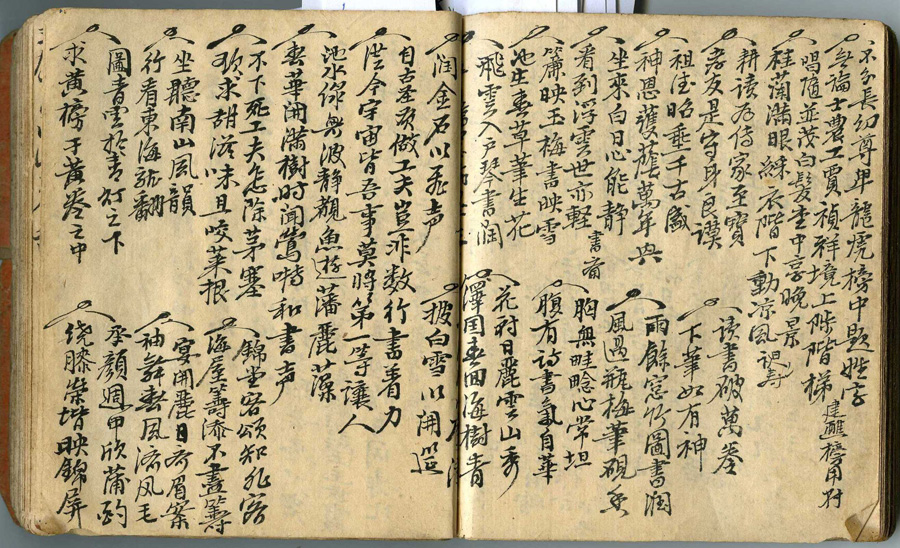 不分長幼尊卑龍虎榜中題姓字
無論士農工賈禎祥境上陟階梯
建醮榜用對
唱隨並茂白髮堂中享晚景
桂蘭滿眼綵衣階下動涼風
祝壽
耕讀為傳家至寶
孝友是守身良謨
祖德昭垂千古盛
神恩護蔭萬年興
坐來白日心能静
看到浮雲世亦輕
書齋
簾映玉梅書映雪
池生春草筆生花
飛雲入戶琴書潤
读書破萬卷
下筆如有神
雨餘窓竹圖書润
風過瓶梅筆硯香
胸無畦畛心常坦
腹有詩書氣自華
花村日麗雲山秀
澤国春回海樹青
润金石以飛声
披白雪以開筵
自古圣贤做工夫豈非数行書着力
從今宇宙皆吾事莫將第一等讓人
池水綠無波静觀魚遊藩麗藻
春華開滿樹时闻鶯啭和書声
不下死工夫怎除茅塞
欲求甜滋味且咬菜根
坐聽南山風韻
行看東海龍翻
圖青雲於青灯之下
求黄榜于黄卷之中
錦堂客頌知孔客
海屋籌添不盡籌
宴開麗日齐眉案
袖舞春風流风毛
承顔週甲欣蒲酌
绕膝崇堦映錦屏